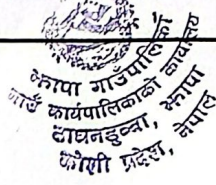 झापा गाउँपालिकाको
गाउँ कार्यपालिकाको कार्यालय
टाघनडुब्बा, झापा
कोशी प्रदेश, नेपाल